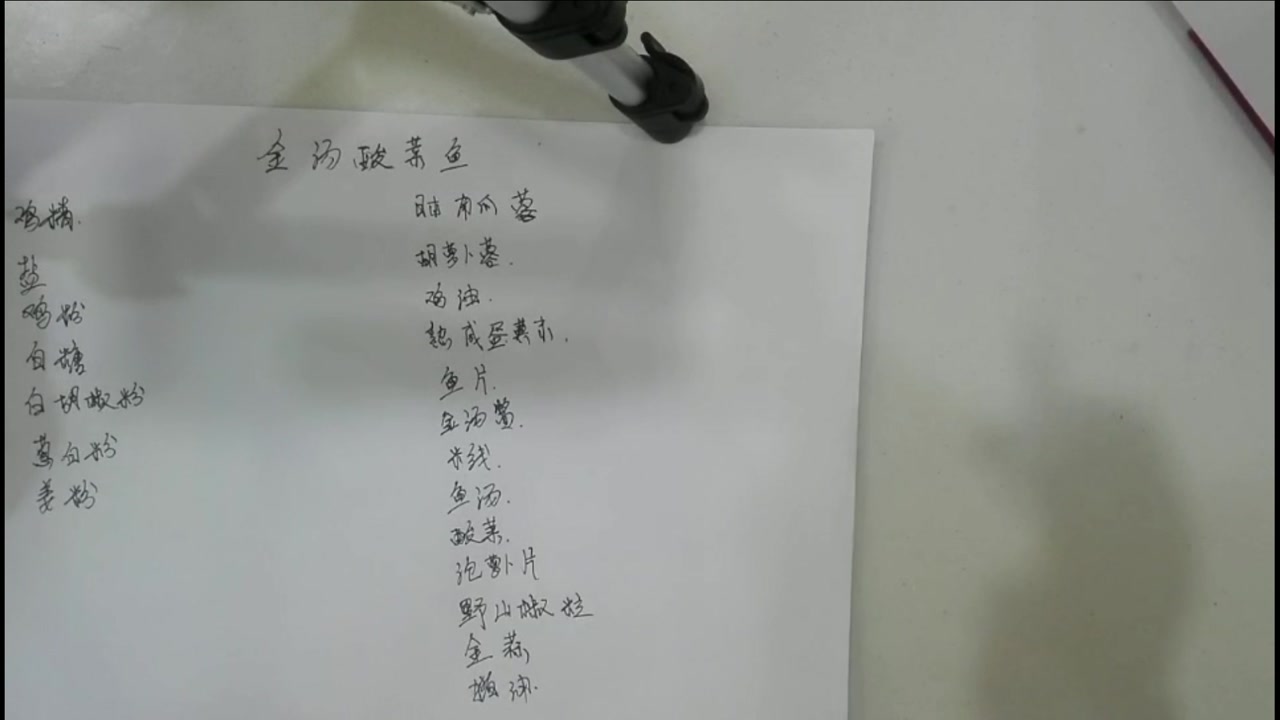 金汤酸菜鱼
鸡精.
盐
鸡粉
白糖
白胡椒粉
葱白粉
姜粉
南瓜蓉
胡萝卜蓉.
鸡油.
熟咸蛋黄末.
鱼片.
金汤酱.
米线.
鱼汤.
酸菜.
泡萝卜片
野山椒粒
金蒜
椒油.